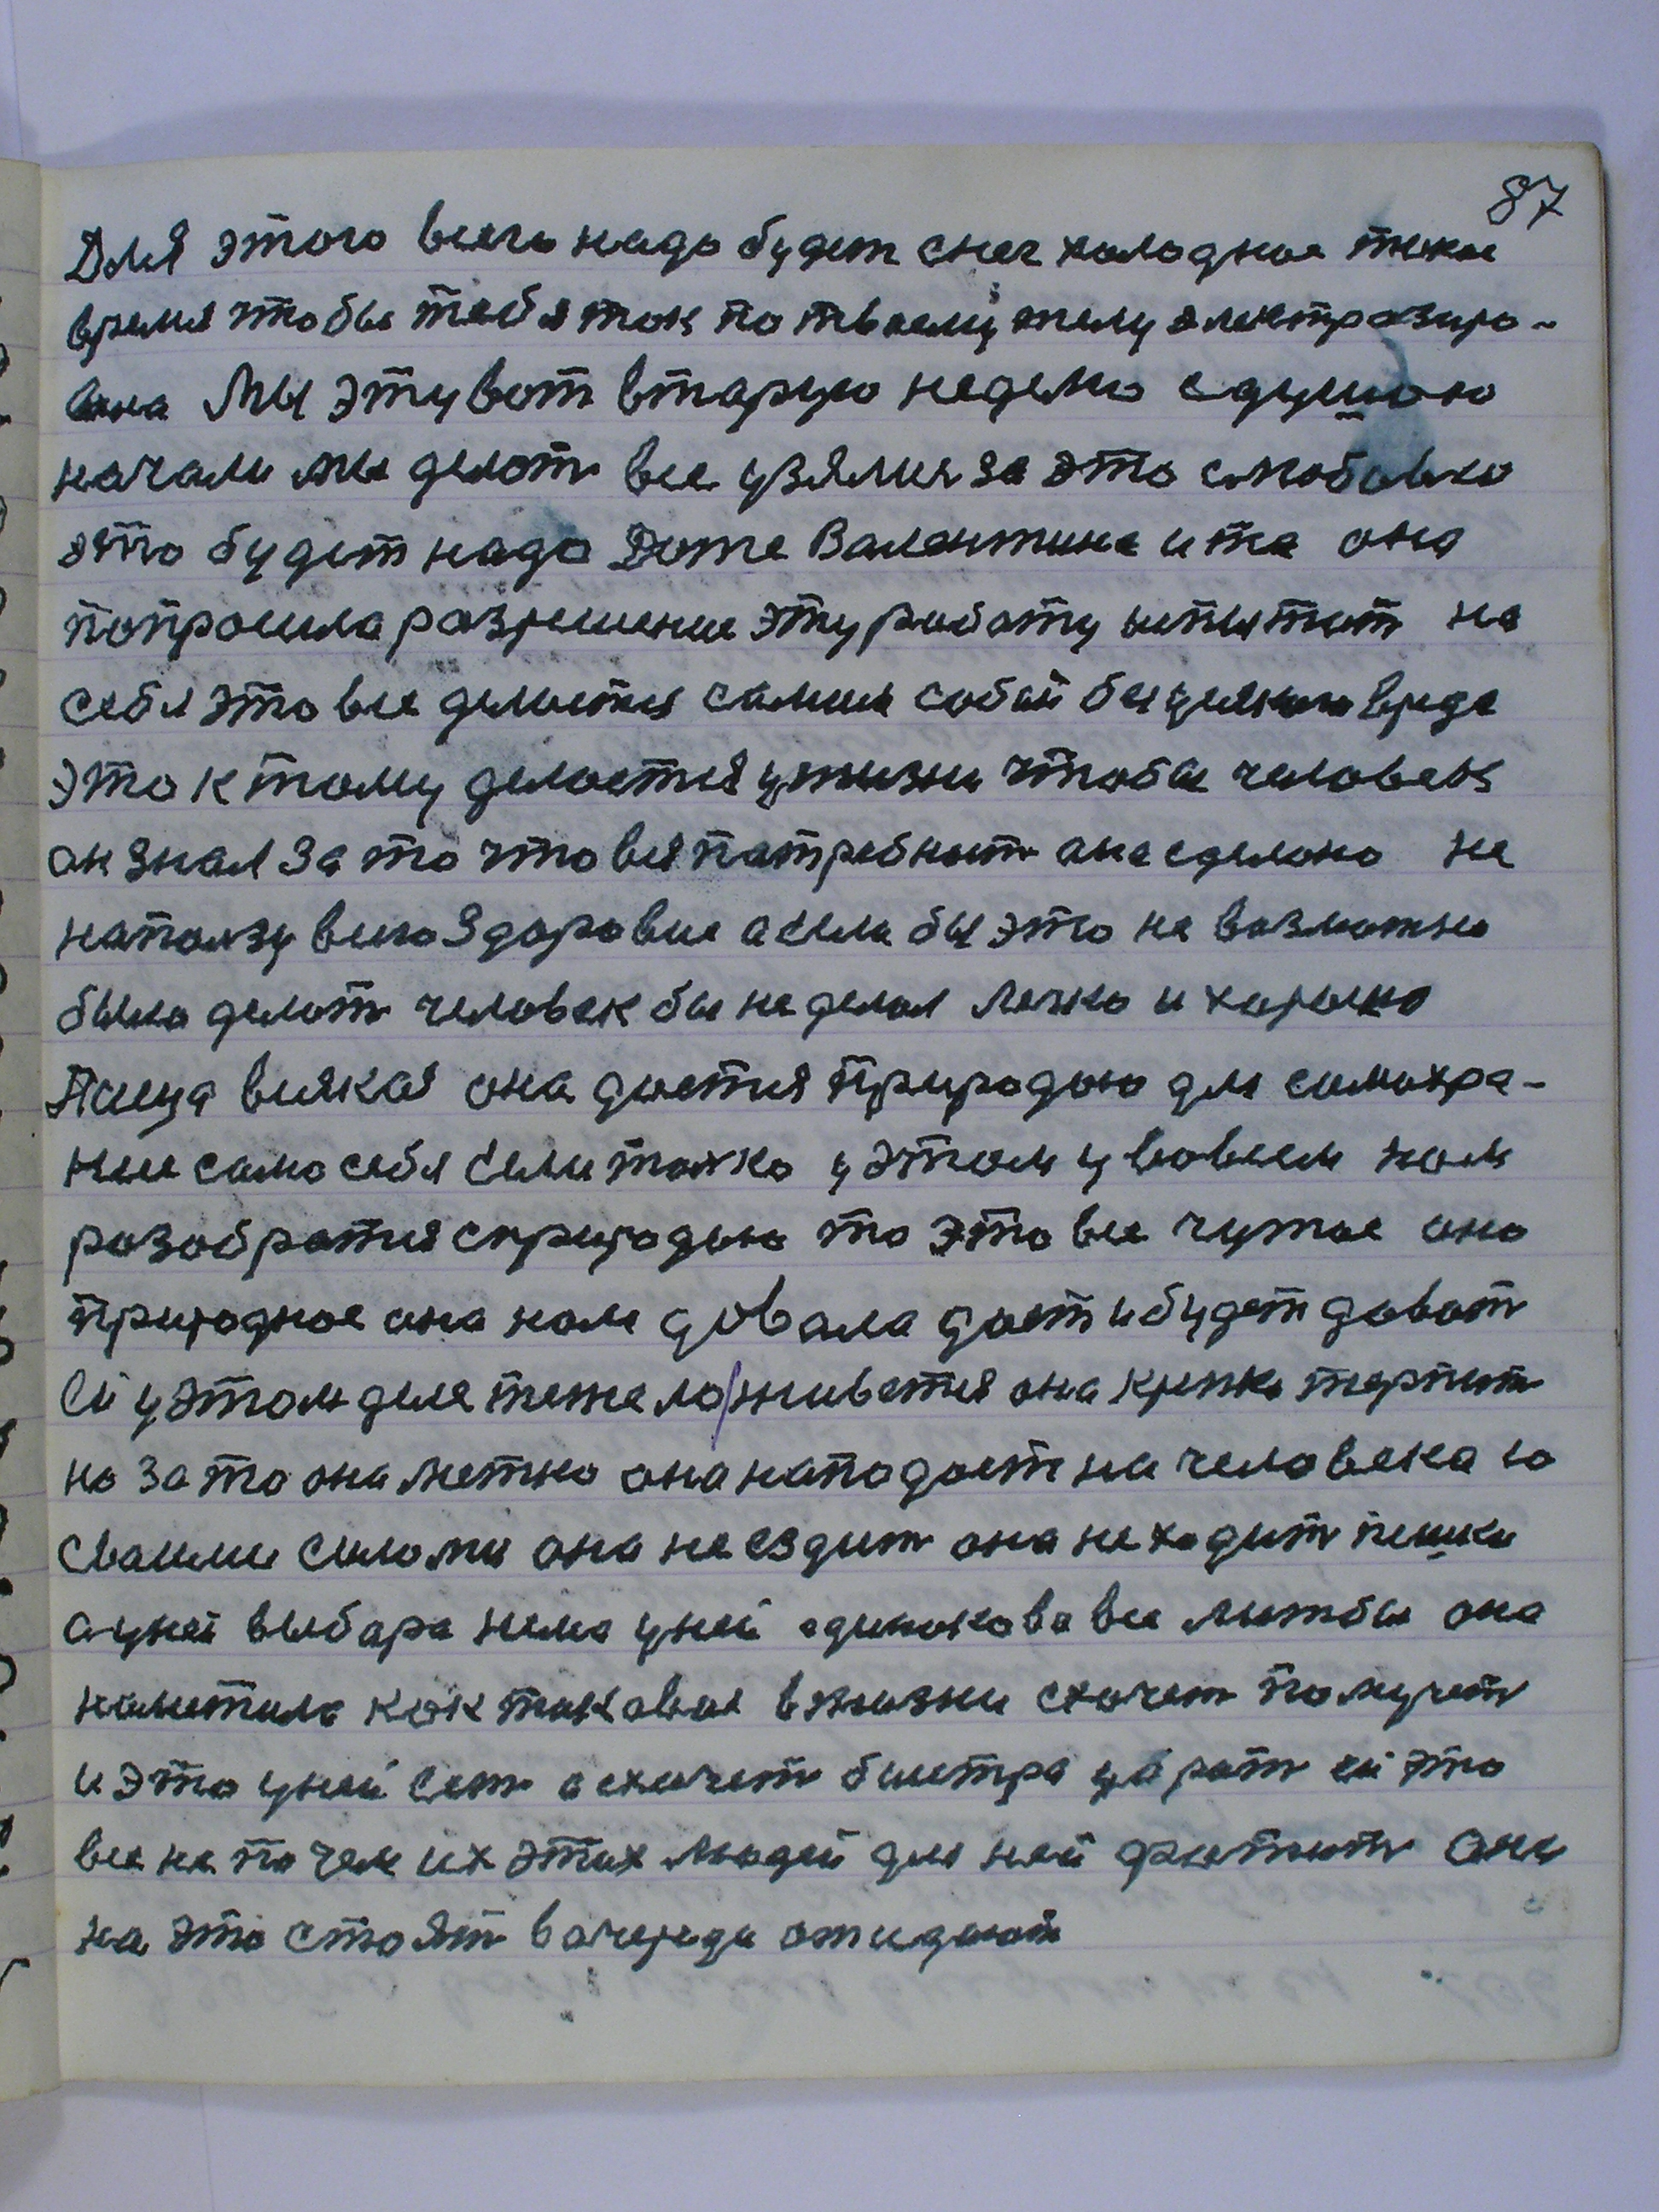 87
Для этого всего надо будет снег холодное тихое
время чтобы тебя ток по твоему телу электразиро-
вана Мы эту вот вторую неделю сдушою
начали мы делот все узялися за это слюбовю
это будет надо Даже Валентина и та она
попросила разрешение эту работу испытат на
себя это все делоится самим собой без усякого вреда
это к тому делоется ужизни чтобы человек
он знал за то что вся патребност она сделоно не
напользу виго здоровие а если бы это не возможно
было делот человек бы не делал легко и хорошо
Пища всякая она дается природою для самохра-
ние само себя Если толко у этом у вовсем нам
разобратся сприродою то это все чужое оно
природное она нам довала дает и будет доват
Ей у этом деле тяжело живется она крепко терпит
но за то она метко она нападает на человека ю
своими силоми она не ездит она не ходит пешки
а уней выбара нема уней одинокова все митбы она
наметила как таковое вжизни схочет получет
и это уней ест а схочет быстра убрат ей это
все не по чем их этих людей для ней фатит Они
на это стоят вочереди ожидают